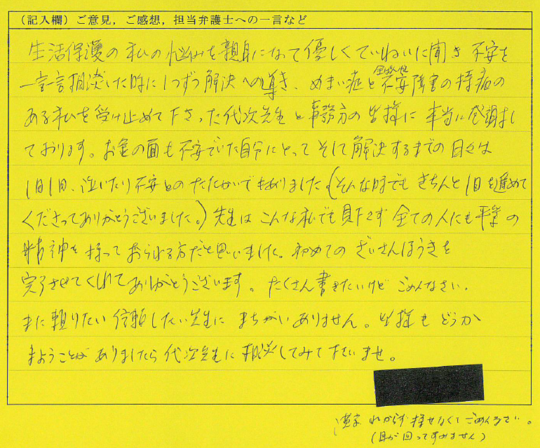 （記入欄）ご意見，ご感想，担当弁護士への一言など
生活保護の私の悩みを親身になって優しくていねいに聞き不安を
一言言相談した時に1つずつ解決への導き、めまい症と全般性不安障害の持病の
ある私を受け止めて下さった代次先生と事務方の皆様に本当に感謝し
ております。お金の面も不安でいた自分にとってそして解決するまでの日々は
1日1日、泣いたり不安とのたたかいでもありました（そんな時でもきちんと1日も進めて
くださってありがとうございました。）先生はこんな私でも見下さず全ての人にも平等の
精神を持っておられる方だと思いました。初めてのざいさんほうきを
完了させてくれてありがとうございます。たくさん書きたいけどごめんなさい。
また頼りたい信頼したい先生にまちがいありません。皆様もどうか
まようことがありましたら代次先生に相談してみて下さいませ。
漢字わからず 書せなくてごめんなさい。
（目が回ってすみません）